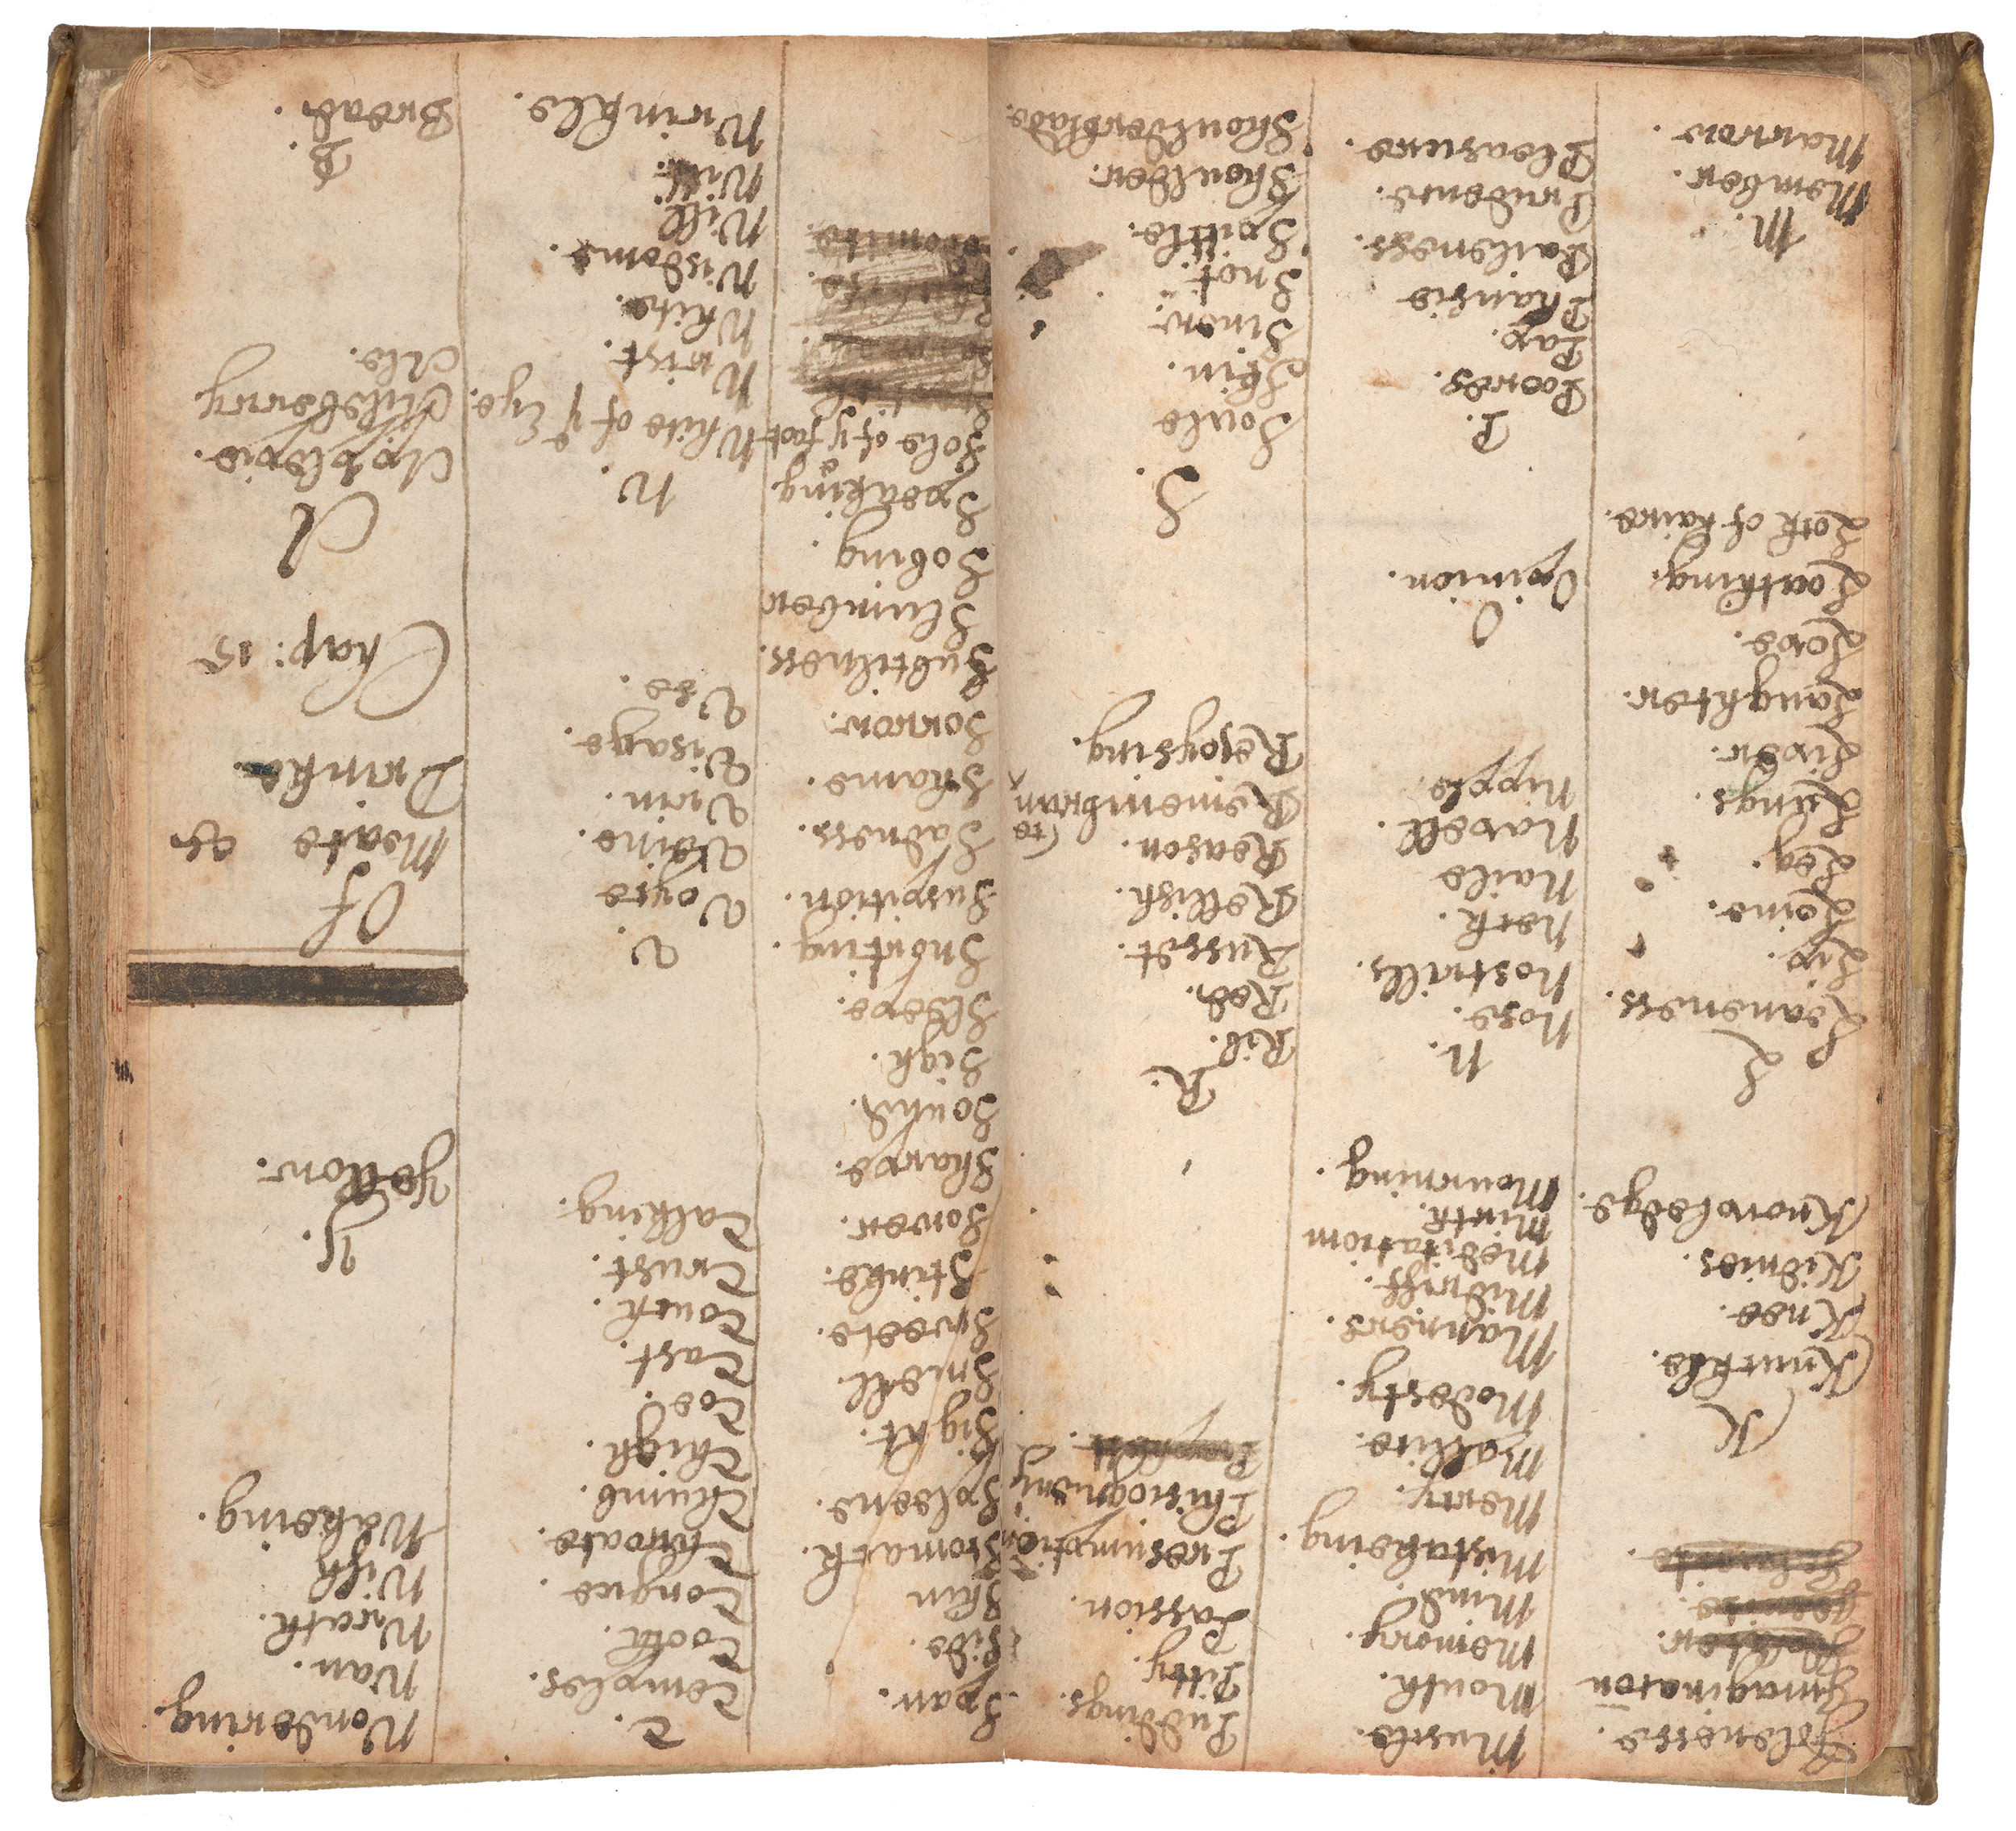 Idlenesse.
Imagination
K
Knuckle.
Knee.
Kidnies.
Knowledge.
L
Leaneness.
Lip.
Loine.
Leg.
Lungs.
Liver.
Laughter.
Love.
Loathing.
Lock of haire.
M.
Member.
Marrow.
Muscle.
Mouth.
Memory.
Mind.
Mistakeing.
Mercy.
Mallice.
Modesty.
Manners.
Midriff.
Meditation
Mirth.
Mourning.
N.
Nose.
Nostrills.
Neck.
Naile
Navell.
Nipple.
O
Opinion.
P.
Poores.
Pap.
Phansie
Paileness.
Prudence.
Pleasure.
Puddings.
Pitty.
Passion.
Presumption
Phisiognomy
R.
Rib.
Red.
Russet.
Rellish.
Reason.
(ce
Remembran
Rejoysing.
S.
Soule
Skin.
Sinew.
Snot.
Spittle.
Shoulder.
Shoulderblade.
Span.
Side.
Shin
Stomach.
Spleene.
Sight.
Smell.
Sweete.
Stinke.
Sower.
Sharpe.
Sound.
Sigh.
Sleepe.
Snorting.
Suspition.
Sadness.
Shame.
Sorrow.
Subtilness.
Slumber
Sobing.
Speaking
Sole of ye foot
T.
Temples.
Tooth.
Tongue.
Throate
Thumb.
Thigh.
Toe.
Tast.
Touch.
Trust.
Talking.
V.
Voyce
Vaine.
Vrin.
Visage.
Vse.
W.
White of ye Eye.
Wrist.
White.
Wisdome.
Will
Will.
Wrinkle.
Wondering
Wan.
Wrath.
Wish
Wakeing.
Y.
Yellow.
Of
Meate &
Drinke.
Chap: 15
A
Applepie.
Ale.
B.
Bread.